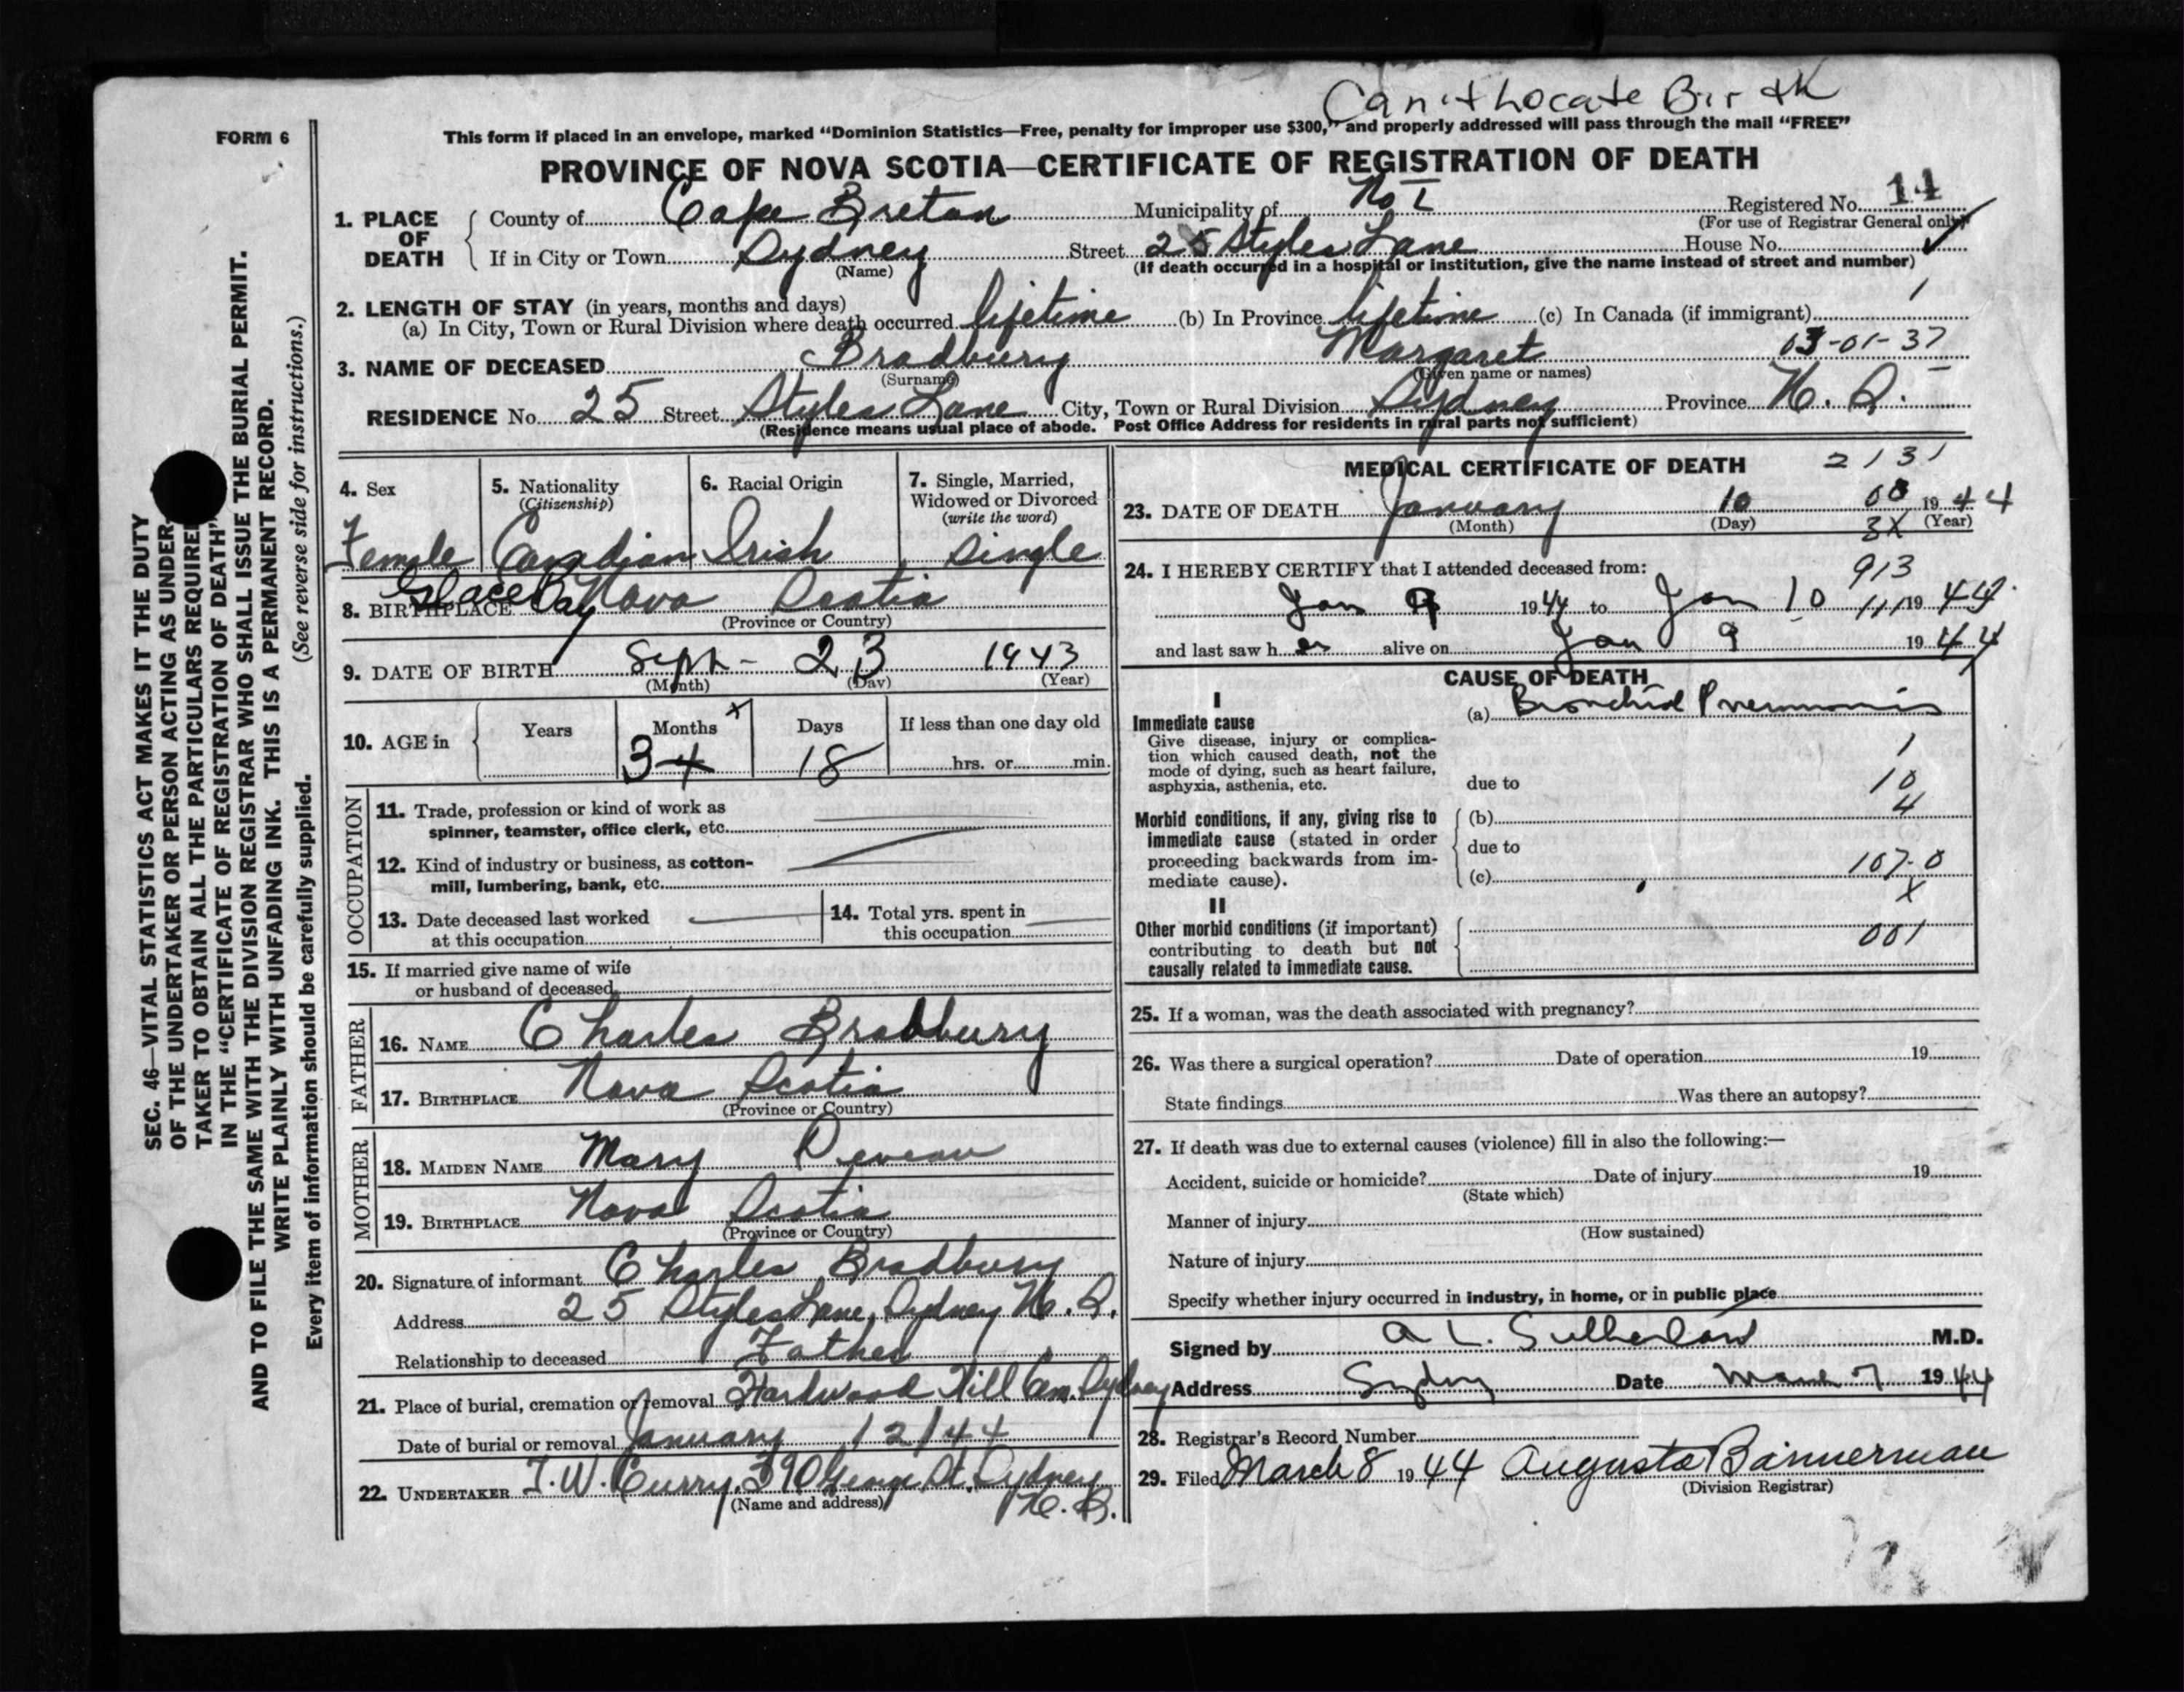 Can't Locate Birth
FORM 6
This form if placed in an envelope, marked "Dominion Statistics—Free, penalty for improper use $300," and properly addressed will pass through the mail "FREE"
PROVINCE OF NOVA SCOTIA—CERTIFICATE OF REGISTRATION OF DEATH
1. PLACE OF DEATH
County of Cape Breton Municipality of No I Registered No. 14
(For use of Registrar General only)
If in City or Town Sydney Street 25 Styles Lane House No.
(Name) (If death occurred in a hospital or institution, give the name instead of street and number)
2. LENGTH OF STAY (in years, months and days) 1
(a) In City, Town or Rural Division where death occurred lifetime (b) In Province lifetime (c) In Canada (if immigrant)
03-01-37
3. NAME OF DECEASED Bradbury Margaret
(Surname) (Given name or names)
RESIDENCE No. 25 Street Styles Lane City, Town or Rural Division Sydney Province N. S.
(Residence means usual place of abode. Post Office Address for residents in rural parts not sufficient)
4. Sex
Female
5. Nationality
(Citizenship)
Canadian
6. Racial Origin
Irish
7. Single, Married,
Widowed or Divorced
(write the word)
Single
8. BIRTHPLACE Glace Bay Nova Scotia
(Province or Country)
9. DATE OF BIRTH Sept - 23 1943
(Month) (Day) (Year)
10. AGE in
Years
Months x
3 4
Days
18
If less than one day old
hrs. or min.
OCCUPATION
11. Trade, profession or kind of work as
spinner, teamster, office clerk, etc.
12. Kind of industry or business, as cotton-
mill, lumbering, bank, etc.
13. Date deceased last worked
at this occupation
14. Total yrs. spent in
this occupation
15. If married give name of wife
or husband of deceased
FATHER
16. NAME Charles Bradbury
17. BIRTHPLACE Nova Scotia
(Province or Country)
MOTHER
18. MAIDEN NAME Mary Deveau
19. BIRTHPLACE Nova Scotia
(Province or Country)
20. Signature of informant Charles Bradbury
Address 25 Styles Lane, Sydney N. S.
Relationship to deceased Father
21. Place of burial, cremation or removal Hardwood Hill Cem. Sydney
Date of burial or removal January 12/44
22. UNDERTAKER T. W. Curry, 390 George St. Sydney
(Name and address) N. S.
MEDICAL CERTIFICATE OF DEATH 2131
23. DATE OF DEATH January 10 00 1944
(Month) (Day) 3X (Year)
24. I HEREBY CERTIFY that I attended deceased from: 913
Jan 9 1944 to Jan 10 111 1944
and last saw her alive on Jan 9 1944
CAUSE OF DEATH
I
Immediate cause
Give disease, injury or complica-
tion which caused death, not the
mode of dying, such as heart failure,
asphyxia, asthenia, etc.
(a) Bronchial Pneumonia
1
due to 10
4
Morbid conditions, if any, giving rise to
immediate cause (stated in order
proceeding backwards from im-
mediate cause).
(b)
due to
107-0
(c)
X
II
Other morbid conditions (if important)
contributing to death but not
causally related to immediate cause.
001
25. If a woman, was the death associated with pregnancy?
26. Was there a surgical operation? Date of operation 19
State findings Was there an autopsy?
27. If death was due to external causes (violence) fill in also the following:—
Accident, suicide or homicide? Date of injury 19
(State which)
Manner of injury
(How sustained)
Nature of injury
Specify whether injury occurred in industry, in home, or in public place
Signed by A L. Sutherland M.D.
Address Sydney Date March 7 1944
28. Registrar's Record Number
29. Filed March 8 1944 Augusta Bannerman
(Division Registrar)
SEC. 46—VITAL STATISTICS ACT MAKES IT THE DUTY
OF THE UNDERTAKER OR PERSON ACTING AS UNDER-
TAKER TO OBTAIN ALL THE PARTICULARS REQUIRED
IN THE "CERTIFICATE OF REGISTRATION OF DEATH"
AND TO FILE THE SAME WITH THE DIVISION REGISTRAR WHO SHALL ISSUE THE BURIAL PERMIT.
WRITE PLAINLY WITH UNFADING INK. THIS IS A PERMANENT RECORD.
Every item of information should be carefully supplied. (See reverse side for instructions.)